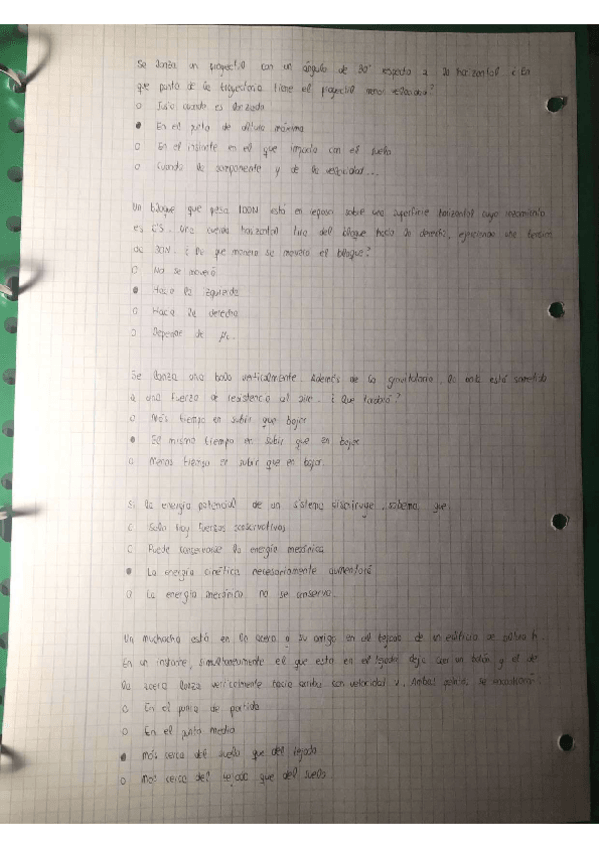 Se lanza un proyectil con un ángulo de 30° respecto a la horizontal ¿En
que punto de la trayectoria tiene el proyectil menor velocidad?
Justo cuando es lanzado
En el punto de altura máxima
En el instante en el que impacta con el suelo
Cuando la componente y de la velocidad...
Un bloque que pesa 100N está en reposo sobre una superficie horizontal cuyo
es 0'5. Una cuerda horizontal tira del bloque hacia la derecha, ejerciendo una fuerza
de 30N. ¿De que manera se moverá el bloque?
No se moverá
Hacia la izquierda
Hacia la derecha
Depende de
Se lanza una bola verticalmente. Además de la gravitatoria, la bola está sometida
a una fuerza de resistencia al aire. ¿Que tardará?
Más tiempo en subir que bajar
El mismo tiempo en subir que en bajar
Menos tiempo en subir que en bajar.
Si la energía potencial de un sistema disminuye, sabemos que
Solo hay fuerzas conservativas
Puede conservarse la energía mecánica
La energía cinética necesariamente aumentará
La energía mecánica no se conserva.
Un muchacho está en la acera y su amigo en el tejado de un edificio de altura h.
En un instante, simultáneamente el que está en el tejado deja caer un balón y el de
la acera lanza verticalmente hacia arriba con velocidad v. Ambas se encontrarán:
En el punto de partida
En el punto medio
Más cerca del suelo que del tejado
Más cerca del tejado que del suelo